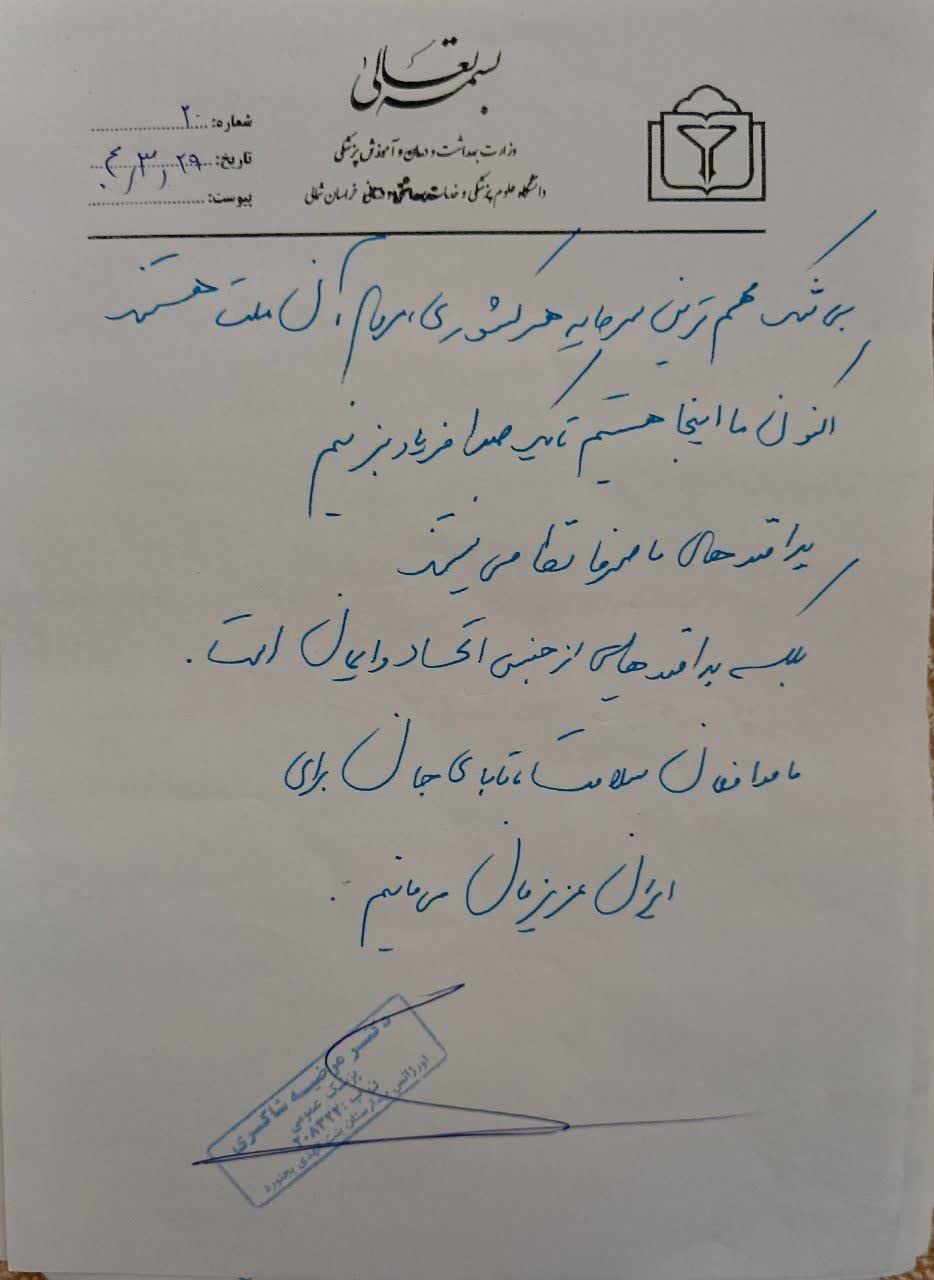 بسمه تعالی
وزارت بهداشت و درمان و آموزش پزشکی
دانشگاه علوم پزشکی و خدمات بهداشتی و درمانی خراسان شمالی
شماره: ۲۰
تاریخ: ۲۹
پیوست:
بی شک مهم ترین سرمایه هر کشوری، مردم آن ملت هستند
اکنون ما اینجا هستیم تا یک صدا فریاد بزنیم
پدافندهای ما صرفا نظامی نیستند
بلکه پدافندهایی از جنس اتحاد و ایمان است.
ما مدافعان سلامت، تا پای جان برای
ایران عزیزمان می مانیم.
دکتر مرضیه شاکری
پزشک عمومی
اورژانس بیمارستان بنت الهدی بجنورد